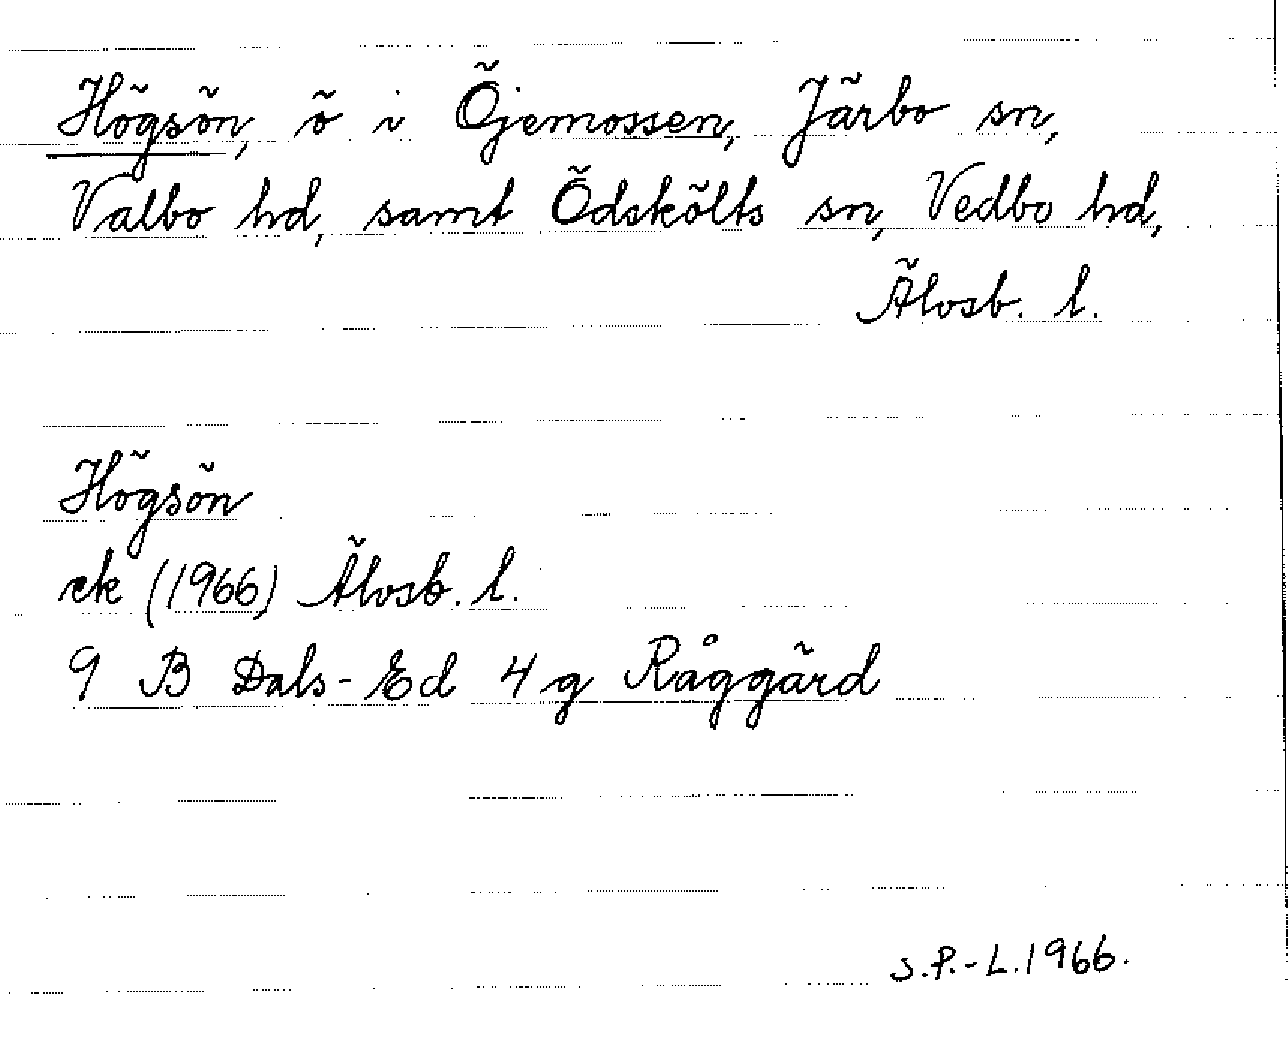 Högsön, ö i Öjemossen, Järbo sn,
Valbo hd, samt Ödskölts sn, Vedbo hd,
Älvsb. l.
Högsön
ek (1966) Älvsb. l.
9 B Dals-Ed 4 g Råggärd
S.P.-L. 1966.